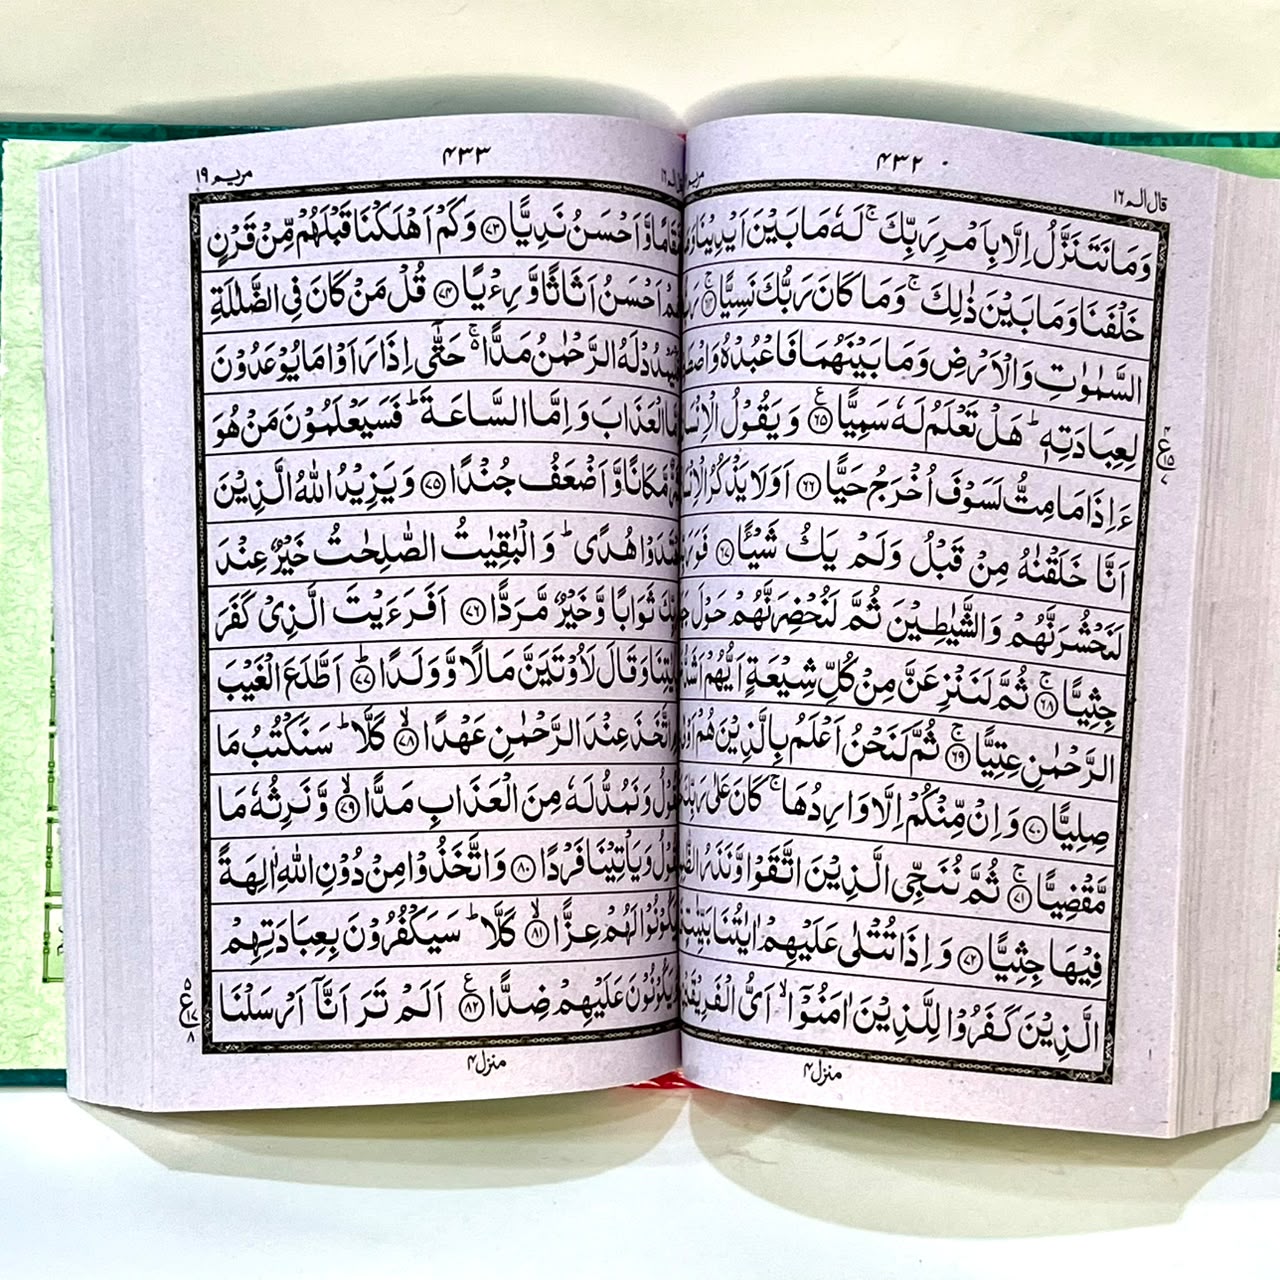 ۴۳۲
قال الم ۱۶
وَمَا نَتَنَزَّلُ اِلَّا بِاَمْرِ رَبِّكَ ۚ لَهٗ مَا بَيْنَ اَيْدِيْنَا
خَلْفَنَا وَمَا بَيْنَ ذٰلِكَ ۚ وَمَا كَانَ رَبُّكَ نَسِيًّا ۚ ﴿۶۴﴾
السَّمٰوٰتِ وَالْاَرْضِ وَمَا بَيْنَهُمَا فَاعْبُدْهُ
لِعِبَادَتِهٖ ؕ هَلْ تَعْلَمُ لَهٗ سَمِيًّا ﴿۶۵﴾ ع وَيَقُوْلُ
ءَاِذَا مَا مِتُّ لَسَوْفَ اُخْرَجُ حَيًّا ﴿۶۶﴾ اَوَلَا يَذْكُرُ
اَنَّا خَلَقْنٰهُ مِنْ قَبْلُ وَلَمْ يَكُ شَيْـًٔا ﴿۶۷﴾
لَنَحْشُرَنَّهُمْ وَالشَّيٰطِيْنَ ثُمَّ لَنُحْضِرَنَّهُمْ حَوْلَ
جِثِيًّا ۚ ﴿۶۸﴾ ثُمَّ لَنَنْزِعَنَّ مِنْ كُلِّ شِيْعَةٍ اَيُّهُمْ
الرَّحْمٰنِ عِتِيًّا ۚ ﴿۶۹﴾ ثُمَّ لَنَحْنُ اَعْلَمُ بِالَّذِيْنَ هُمْ
صِلِيًّا ﴿۷۰﴾ وَاِنْ مِّنْكُمْ اِلَّا وَارِدُهَا ۚ كَانَ عَلٰى رَبِّكَ
مَّقْضِيًّا ۚ ﴿۷۱﴾ ثُمَّ نُنَجِّى الَّذِيْنَ اتَّقَوْا وَّنَذَرُ
فِيْهَا جِثِيًّا ﴿۷۲﴾ وَاِذَا تُتْلٰى عَلَيْهِمْ اٰيٰتُنَا
الَّذِيْنَ كَفَرُوْا لِلَّذِيْنَ اٰمَنُوْٓا ۙ اَىُّ
منزل ۴
۴۳۳
مريم ۱۹
وَّاَحْسَنُ نَدِيًّا ﴿۷۳﴾ وَكَمْ اَهْلَكْنَا قَبْلَهُمْ مِّنْ قَرْنٍ
اَحْسَنُ اَثَاثًا وَّرِءْيًا ﴿۷۴﴾ قُلْ مَنْ كَانَ فِى الضَّلٰلَةِ
لَهُ الرَّحْمٰنُ مَدًّا ۚ حَتّٰٓى اِذَا رَاَوْا مَا يُوْعَدُوْنَ
الْعَذَابَ وَاِمَّا السَّاعَةَ ؕ فَسَيَعْلَمُوْنَ مَنْ هُوَ
مَّكَانًا وَّاَضْعَفُ جُنْدًا ﴿۷۵﴾ وَيَزِيْدُ اللّٰهُ الَّذِيْنَ
هُدًى ؕ وَالْبٰقِيٰتُ الصّٰلِحٰتُ خَيْرٌ عِنْدَ
ثَوَابًا وَّخَيْرٌ مَّرَدًّا ﴿۷۶﴾ اَفَرَءَيْتَ الَّذِىْ كَفَرَ
وَقَالَ لَاُوْتَيَنَّ مَالًا وَّوَلَدًا ؕ ﴿۷۷﴾ اَطَّلَعَ الْغَيْبَ
اتَّخَذَ عِنْدَ الرَّحْمٰنِ عَهْدًا ۙ ﴿۷۸﴾ كَلَّا ؕ سَنَكْتُبُ مَا
وَنَمُدُّ لَهٗ مِنَ الْعَذَابِ مَدًّا ۙ ﴿۷۹﴾ وَّنَرِثُهٗ مَا
وَيَاْتِيْنَا فَرْدًا ﴿۸۰﴾ وَاتَّخَذُوْا مِنْ دُوْنِ اللّٰهِ اٰلِهَةً
لَهُمْ عِزًّا ۙ ﴿۸۱﴾ كَلَّا ؕ سَيَكْفُرُوْنَ بِعِبَادَتِهِمْ
عَلَيْهِمْ ضِدًّا ﴿۸۲﴾ ع اَلَمْ تَرَ اَنَّآ اَرْسَلْنَا
منزل ۴